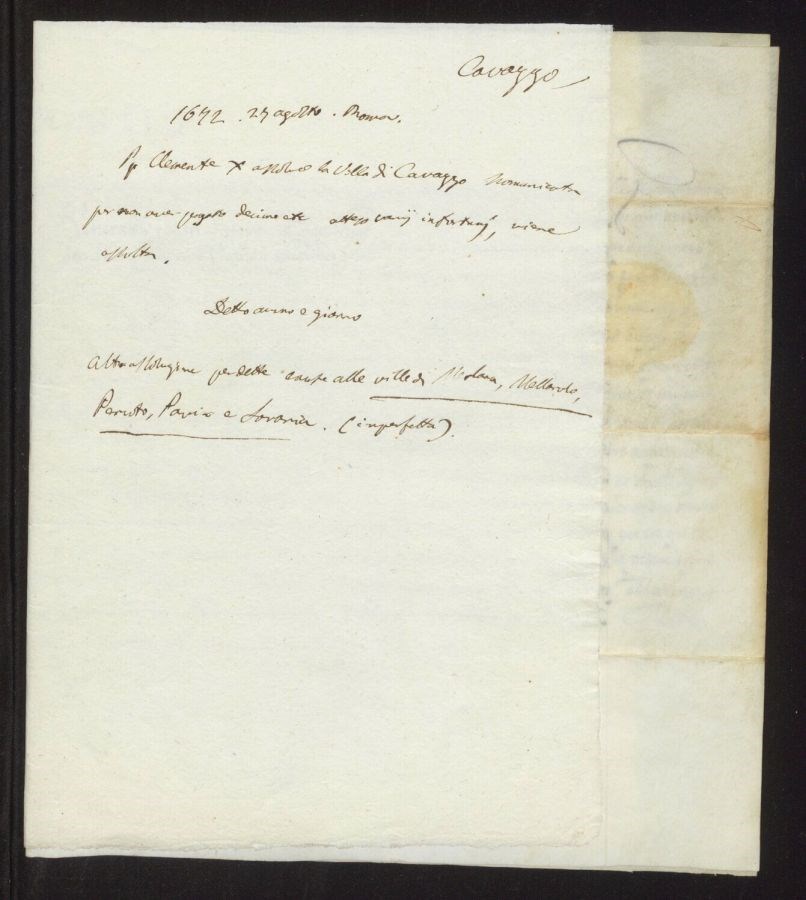 Cavazzo
1672. 27 agosto. Roma.
Pp Clemente X assolve la Villa di Cavazzo scomunicata
per non aver pagato decime etc. atteso varij infortunj, viene
assolta.
Detto anno e giorno
Altra assoluzione per dette cause alle ville di Mellarolo,
Percoto, Pavia e Lovaria. (imperfetta).